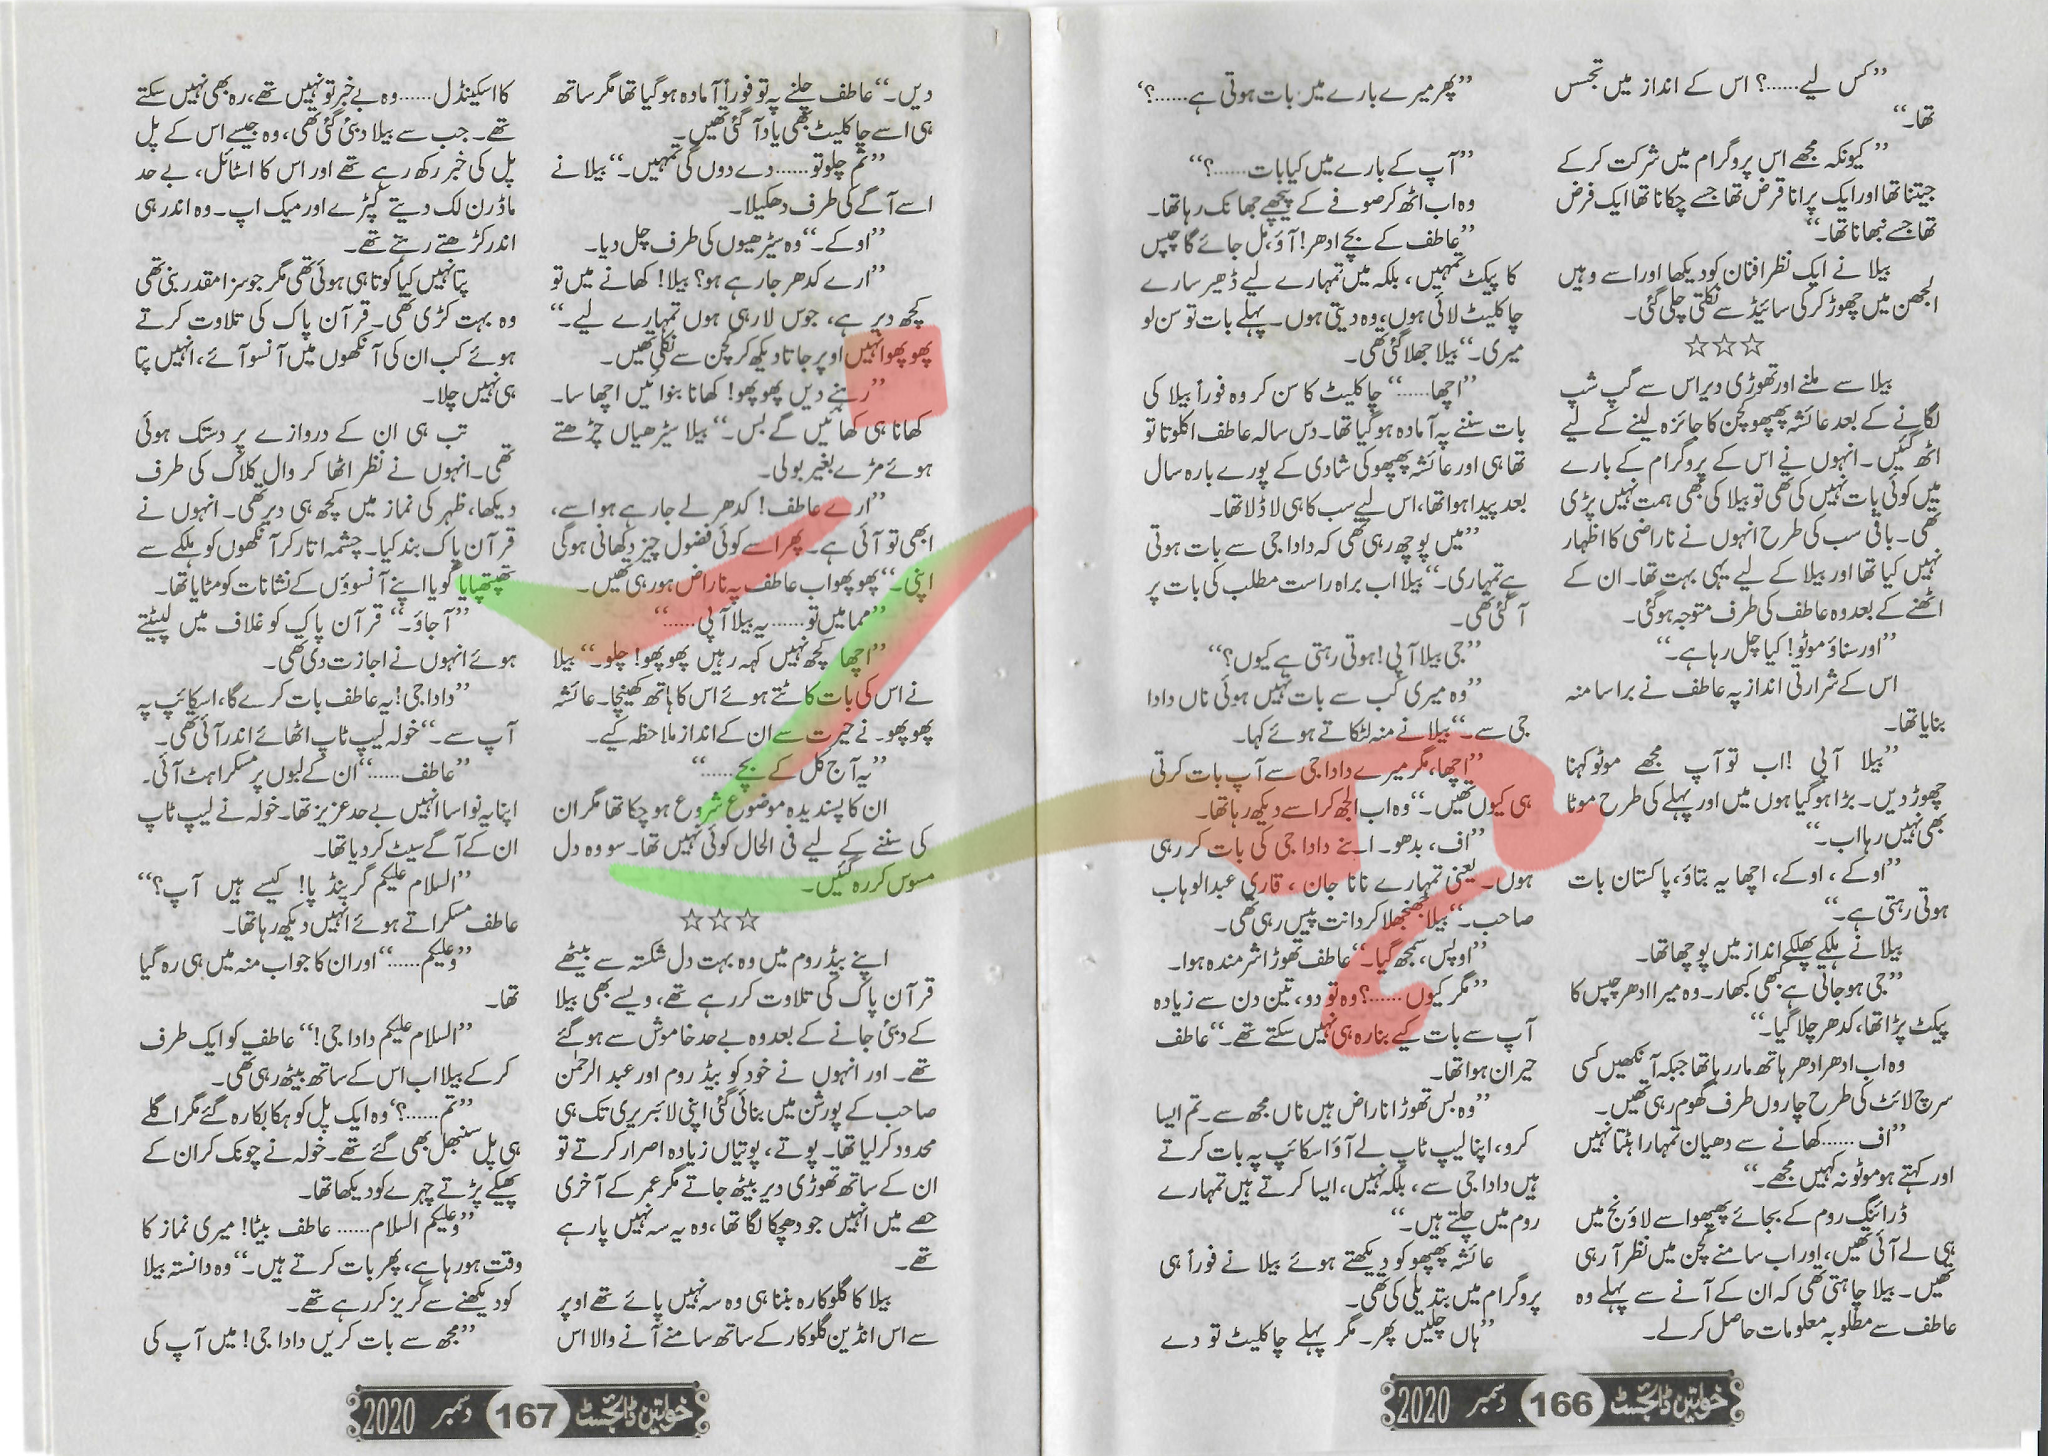 ”کس لیے......؟ اس کے انداز میں تجسس
تھا۔“
”کیونکہ مجھے اس پروگرام میں شرکت کرکے
جیتنا تھا اور ایک پرانا قرض تھا جسے چکانا تھا ایک فرض
تھا جسے نبھانا تھا۔“
بیلا نے ایک نظر افنان کو دیکھا اور اسے وہیں
الجھن میں چھوڑ کر کی سائیڈ سے نکلتی چلی گئی۔
☆☆☆
بیلا سے ملنے اور تھوڑی دیر اس سے گپ شپ
لگانے کے بعد عائشہ پھپھو کچن کا جائزہ لینے کے لیے
اٹھ گئیں۔ انہوں نے اس کے پروگرام کے بارے
میں کوئی بات نہیں کی تھی تو بیلا کی بھی ہمت نہیں پڑی
تھی۔ باقی سب کی طرح انہوں نے ناراضی کا اظہار
نہیں کیا تھا اور بیلا کے لیے یہی بہت تھا۔ ان کے
اٹھنے کے بعد وہ عاطف کی طرف متوجہ ہوگئی۔
”اور سناؤ موٹو! کیا چل رہا ہے۔“
اس کے شرارتی انداز پہ عاطف نے برا سا منہ
بنایا تھا۔
”بیلا آپی! اب تو آپ مجھے موٹو کہنا
چھوڑ دیں۔ بڑا ہو گیا ہوں میں اور پہلے کی طرح موٹا
بھی نہیں رہا اب۔“
”اوکے، اوکے، اچھا یہ بتاؤ، پاکستان بات
ہوتی رہتی ہے۔“
بیلا نے ہلکے پھلکے انداز میں پوچھا تھا۔
”جی ہو جاتی ہے کبھی کبھار۔ وہ میرا ادھر چپس کا
پیکٹ پڑا تھا، کدھر چلا گیا۔“
وہ اب ادھر ادھر ہاتھ مار رہا تھا جبکہ آنکھیں کسی
سرچ لائٹ کی طرح چاروں طرف گھوم رہی تھیں۔
”اف...... کھانے سے دھیان تمہارا ہٹتا نہیں
اور کہتے ہو موٹو نہ کہیں مجھے۔“
ڈرائنگ روم کے بجائے پھپھو اسے لاؤنج میں
ہی لے آئی تھیں، اور اب سامنے کچن میں نظر آ رہی
تھیں۔ بیلا چاہتی تھی کہ ان کے آنے سے پہلے وہ
عاطف سے مطلوبہ معلومات حاصل کرلے۔
”پھر میرے بارے میں بات ہوتی ہے......؟‘
”آپ کے بارے میں کیا بات......؟“
وہ اب اٹھ کر صوفے کے پیچھے جھانک رہا تھا۔
”عاطف کے بچے ادھر! آؤ، مل جائے گا چپس
کا پیکٹ تمہیں، بلکہ میں تمہارے لیے ڈھیر سارے
چاکلیٹ لائی ہوں، وہ دیتی ہوں۔ پہلے بات تو سن لو
میری۔“ بیلا جھلا گئی تھی۔
”اچھا......“ چاکلیٹ کا سن کر وہ فوراً بیلا کی
بات سننے پہ آمادہ ہو گیا تھا۔ دس سالہ عاطف اکلوتا تو
تھا ہی اور عائشہ پھپھو کی شادی کے پورے بارہ سال
بعد پیدا ہوا تھا، اس لیے سب کا ہی لاڈلا تھا۔
”میں پوچھ رہی تھی کہ دادا جی سے بات ہوتی
ہے تمہاری۔“ بیلا اب براہ راست مطلب کی بات پر
آ گئی تھی۔
”جی بیلا آپی! ہوتی رہتی ہے کیوں؟“
”وہ میری کب سے بات نہیں ہوئی ناں دادا
جی سے۔“ بیلا نے منہ لٹکاتے ہوئے کہا۔
”اچھا، مگر میرے دادا جی سے آپ بات کرتی
ہی کیوں تھیں۔“ وہ اب الجھ کر اسے دیکھ رہا تھا۔
”اف، بدھو۔ اپنے دادا جی کی بات کر رہی
ہوں۔ یعنی تمہارے نانا جان، قاری عبدالوہاب
صاحب۔“ بیلا جھنجھلا کر دانت پیس رہی تھی۔
”اوپس، سمجھ گیا۔“ عاطف تھوڑا شرمندہ ہوا۔
”مگر کیوں......؟ وہ تو دو، تین دن سے زیادہ
آپ سے بات کیے بنا رہ ہی نہیں سکتے تھے۔“ عاطف
حیران ہوا تھا۔
”وہ بس تھوڑا ناراض ہیں ناں مجھ سے۔ تم ایسا
کرو، اپنا لیپ ٹاپ لے آؤ اسکائپ پہ بات کرتے
ہیں دادا جی سے، بلکہ نہیں، ایسا کرتے ہیں تمہارے
روم میں چلتے ہیں۔“
عائشہ پھپھو کو دیکھتے ہوئے بیلا نے فوراً ہی
پروگرام میں تبدیلی کی تھی۔
”ہاں چلیں پھر۔ مگر پہلے چاکلیٹ تو دے
خواتین ڈائجسٹ 166 دسمبر 2020
دیں۔“ عاطف چلنے پہ تو فوراً آمادہ ہو گیا تھا مگر ساتھ
ہی اسے چاکلیٹ بھی یاد آ گئی تھیں۔
”تم چلو تو...... دے دوں گی تمہیں۔“ بیلا نے
اسے آگے کی طرف دھکیلا۔
”اوکے۔“ وہ سیڑھیوں کی طرف چل دیا۔
”ارے کدھر جا رہے ہو؟ بیلا! کھانے میں تو
کچھ دیر ہے، جوس لا رہی ہوں تمہارے لیے۔“
پھوپھو انہیں اوپر جاتا دیکھ کر کچن سے نکلی تھیں۔
”رہنے دیں پھوپھو! کھانا بنوائیں اچھا سا۔
کھانا ہی کھائیں گے بس۔“ بیلا سیڑھیاں چڑھتے
ہوئے مڑے بغیر بولی۔
”ارے عاطف! کدھر لے جا رہے ہو اسے،
ابھی تو آئی ہے۔ پھر اسے کوئی فضول چیز دکھانی ہوگی
اپنی۔“ پھوپھو اب عاطف پہ ناراض ہو رہی تھیں۔
”مما میں تو...... یہ بیلا آپی......“
”اچھا کچھ نہیں کہہ رہیں پھوپھو! چلو۔“ بیلا
نے اس کی بات کاٹتے ہوئے اس کا ہاتھ کھینچا۔ عائشہ
پھوپھو۔ نے حیرت سے ان کے انداز ملاحظہ کیے۔
”یہ آج کل کے بچے......“
ان کا پسندیدہ موضوع شروع ہو چکا تھا مگر ان
کی سننے کے لیے فی الحال کوئی نہیں تھا۔ سو وہ دل
مسوس کر رہ گئیں۔
☆☆☆
اپنے بیڈ روم میں وہ بہت دل شکستہ سے بیٹھے
قرآن پاک کی تلاوت کر رہے تھے، ویسے بھی بیلا
کے دبئی جانے کے بعد وہ بے حد خاموش سے ہو گئے
تھے۔ اور انہوں نے خود کو بیڈ روم اور عبدالرحمٰن
صاحب کے پورشن میں بنائی گئی اپنی لائبریری تک ہی
محدود کر لیا تھا۔ پوتے، پوتیاں زیادہ اصرار کرتے تو
ان کے ساتھ تھوڑی دیر بیٹھ جاتے مگر عمر کے آخری
حصے میں انہیں جو دھچکا لگا تھا، وہ یہ سہ نہیں پا رہے
تھے۔
بیلا کا گلوکارہ بننا ہی وہ سہ نہیں پائے تھے اوپر
سے اس انڈین گلوکار کے ساتھ سامنے آنے والا اس
کا اسکینڈل...... وہ بے خبر تو نہیں تھے، رہ بھی نہیں سکتے
تھے۔ جب سے بیلا دبئی گئی تھی، وہ جیسے اس کے پل
پل کی خبر رکھ رہے تھے اور اس کا اسٹائل، بے حد
ماڈرن لک دیتے کپڑے اور میک اپ۔ وہ اندر ہی
اندر کڑھتے رہتے تھے۔
پتا نہیں کیا کوتاہی ہوئی تھی مگر جو سزا مقدر بنی تھی
وہ بہت کڑی تھی۔ قرآن پاک کی تلاوت کرتے
ہوئے کب ان کی آنکھوں میں آنسو آئے، انہیں پتا
ہی نہیں چلا۔
تب ہی ان کے دروازے پر دستک ہوئی
تھی۔ انہوں نے نظر اٹھا کر وال کلاک کی طرف
دیکھا، ظہر کی نماز میں کچھ ہی دیر تھی۔ انہوں نے
قرآن پاک بند کیا۔ چشمہ اتار کر آنکھوں کو ہلکے سے
تھپتھپایا گویا اپنے آنسوؤں کے نشانات کو مٹایا تھا۔
”آجاؤ۔“ قرآن پاک کو غلاف میں لپیٹتے
ہوئے انہوں نے اجازت دی تھی۔
”دادا جی! یہ عاطف بات کرے گا، اسکائپ پہ
آپ سے۔“ خولہ لیپ ٹاپ اٹھائے اندر آئی تھی۔
”عاطف......“ ان کے لبوں پر مسکراہٹ آئی۔
اپنا یہ نواسا انہیں بے حد عزیز تھا۔ خولہ نے لیپ ٹاپ
ان کے آگے سیٹ کر دیا تھا۔
”السلام علیکم گرینڈ پا! کیسے ہیں آپ؟“
عاطف مسکراتے ہوئے انہیں دیکھ رہا تھا۔
”وعلیکم......“ اور ان کا جواب منہ میں ہی رہ گیا
تھا۔
”السلام علیکم دادا جی!“ عاطف کو ایک طرف
کرکے بیلا اب اس کے ساتھ بیٹھ رہی تھی۔
”تم......؟‘ وہ ایک پل کو ہکا بکا رہ گئے مگر اگلے
ہی پل سنبھل بھی گئے تھے۔ خولہ نے چونک کر ان کے
پھیکے پڑتے چہرے کو دیکھا تھا۔
”وعلیکم السلام...... عاطف بیٹا! میری نماز کا
وقت ہو رہا ہے، پھر بات کرتے ہیں۔“ وہ دانستہ بیلا
کو دیکھنے سے گریز کر رہے تھے۔
”مجھ سے بات کریں دادا جی! میں آپ کی
خواتین ڈائجسٹ 167 دسمبر 2020